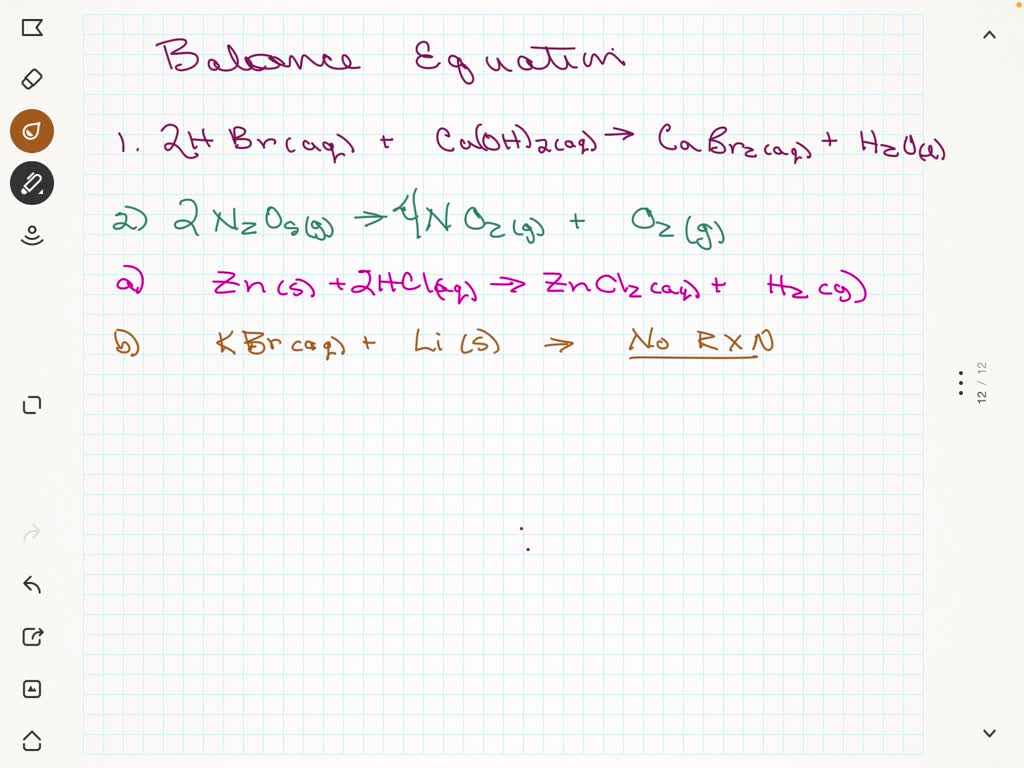 Balance Equation
1. 2HBr(aq) + Ca(OH)2(aq) → CaBr2(aq) + H2O(l)
2) 2N2O5(g) → 4NO2(g) + O2(g)
a) Zn(s) + 2HCl(aq) → ZnCl2(aq) + H2(g)
b) KBr(aq) + Li(s) → No RXN
12 / 12